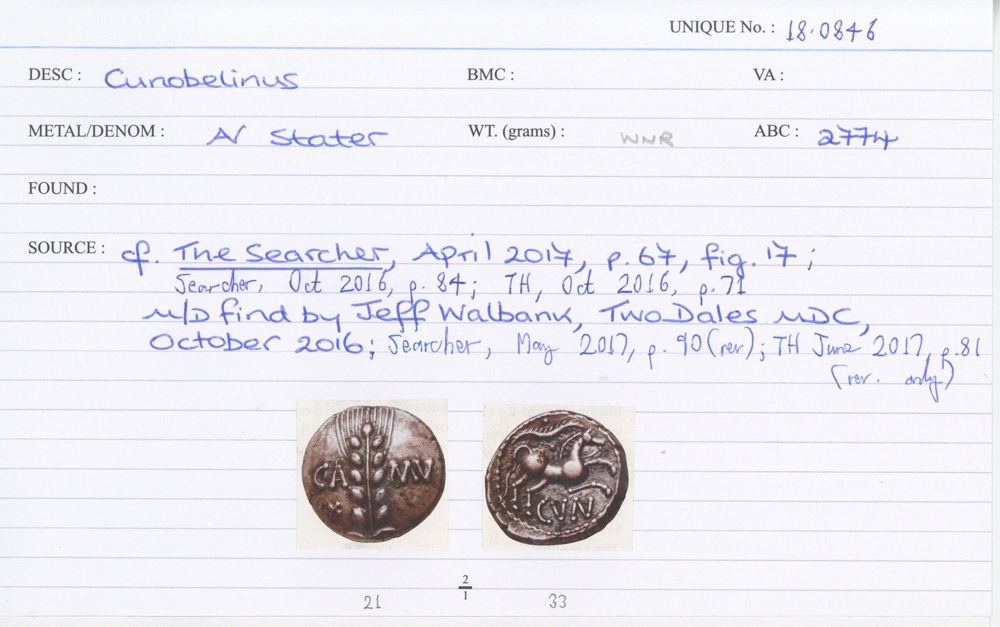 UNIQUE No. : 18.0846
DESC : Cunobelinus BMC : VA :
METAL/DENOM : AV Stater WT. (grams) : WNR ABC : 2774
FOUND :
SOURCE : cf. The Searcher, April 2017, p.67, fig. 17 ;
Searcher, Oct 2016, p. 84; TH, Oct 2016, p.71
M/D find by Jeff Walbank, Two Dales MDC,
October 2016; Searcher, May 2017, p. 90 (rev); TH June 2017, p.81
(rev. only)
CA MV
CVN
2
1
21 33